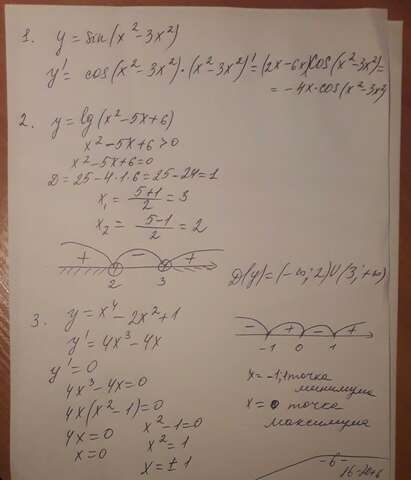 1. y = sin(x² - 3x²)
y' = cos(x² - 3x²) · (x² - 3x²)' = (2x - 6x)cos(x² - 3x²) =
= -4x · cos(x² - 3x²)
2. y = lg(x² - 5x + 6)
x² - 5x + 6 > 0
x² - 5x + 6 = 0
D = 25 - 4 · 1 · 6 = 25 - 24 = 1
x₁ = (5+1)/2 = 3
x₂ = (5-1)/2 = 2
+ - +
2 3
D(y) = (-∞; 2)U(3; +∞)
3. y = x⁴ - 2x² + 1
y' = 4x³ - 4x
y' = 0
4x³ - 4x = 0
4x(x² - 1) = 0
4x = 0 x² - 1 = 0
x = 0 x² = 1
x = ± 1
- + - +
-1 0 1
x = -1; 1 точка
минимума
x = 0 точка
максимума
-6-